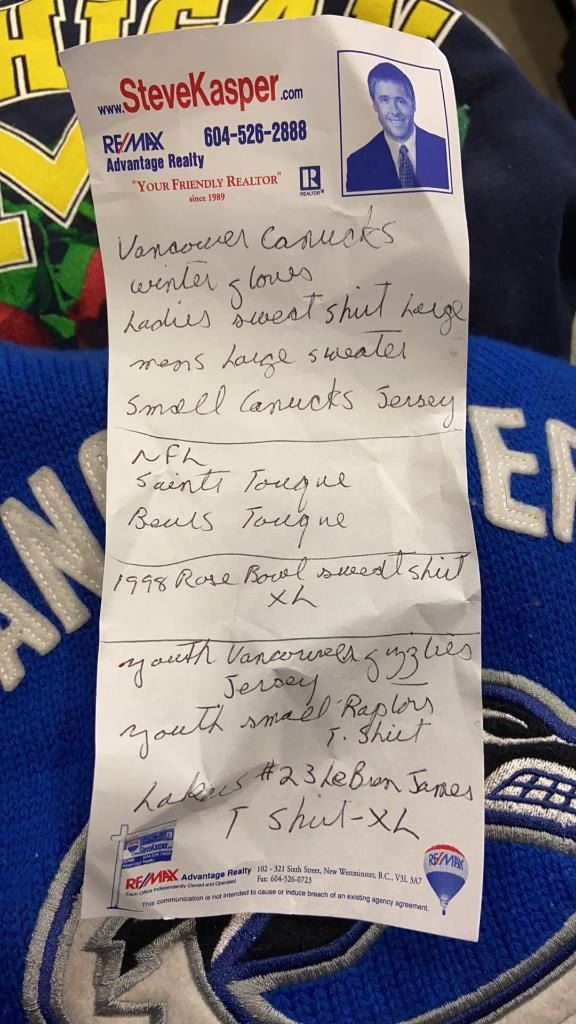 HIGAN
M
www.SteveKasper.com
RE/MAX 604-526-2888
Advantage Realty
"YOUR FRIENDLY REALTOR"
since 1989
R
REALTOR®
Vancouver Canucks
winter gloves
Ladies sweat shirt Large
mens Large sweater
Small Canucks Jersey
NFL
Saints Touque
Bears Touque
1998 Rose Bowl sweat shirt
XL
youth Vancouver grizzlies
Jersey
youth small Raptors
T. Shirt
Lakers #23 LeBron James
T Shirt-XL
ANC
ER
RE/MAX Advantage Realty 102 - 321 Sixth Street, New Westminster, B.C., V3L 3A7
Each Office Independently Owned and Operated Fax: 604-526-0723
This communication is not intended to cause or induce breach of an existing agency agreement.
RE/MAX